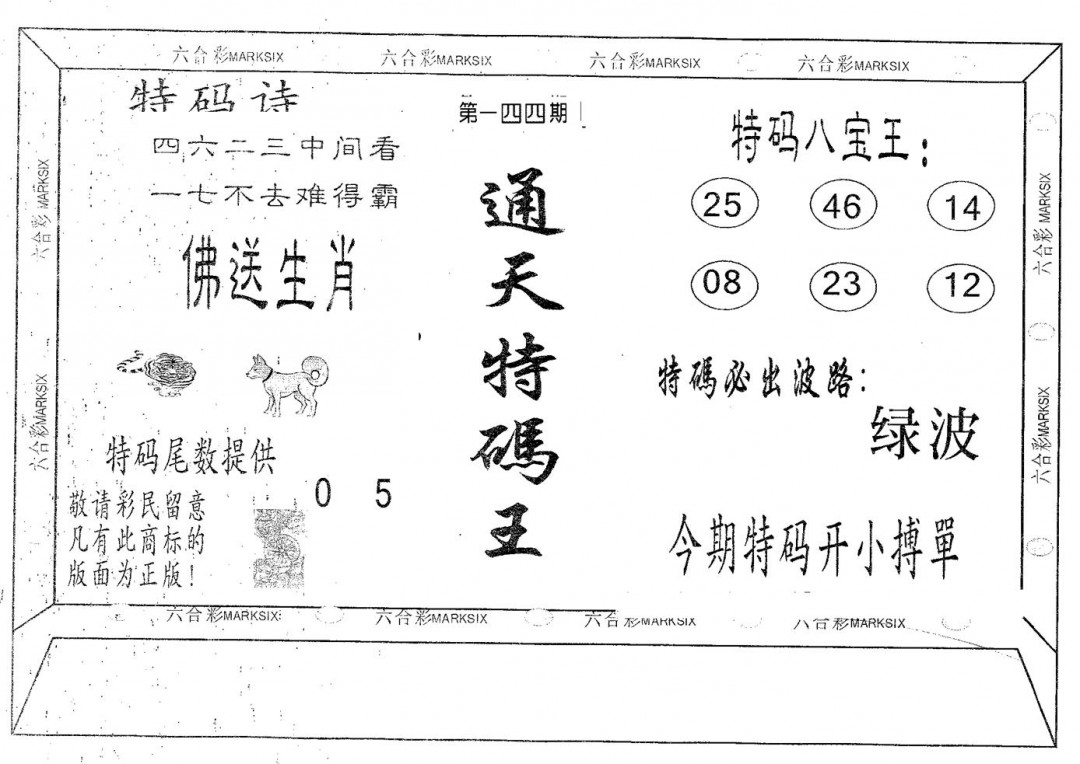 六合彩MARKSIX
六合彩MARKSIX
六合彩MARKSIX
六合彩MARKSIX
特码诗
四六二三中间看
一七不去难得霸
佛送生肖
特码尾数提供
0 5
敬请彩民留意
凡有此商标的
版面为正版！
第一四四期
通天特碼王
特码八宝王：
25 46 14
08 23 12
特碼必出波路：
绿波
今期特码开小搏單
六合彩 MARKSIX
六合彩MARKSIX
六合彩 MARKSIX
六合彩MARKSIX
六合彩MARKSIX
六合彩MARKSIX
六合彩MARKSIX
六合彩MARKSIX